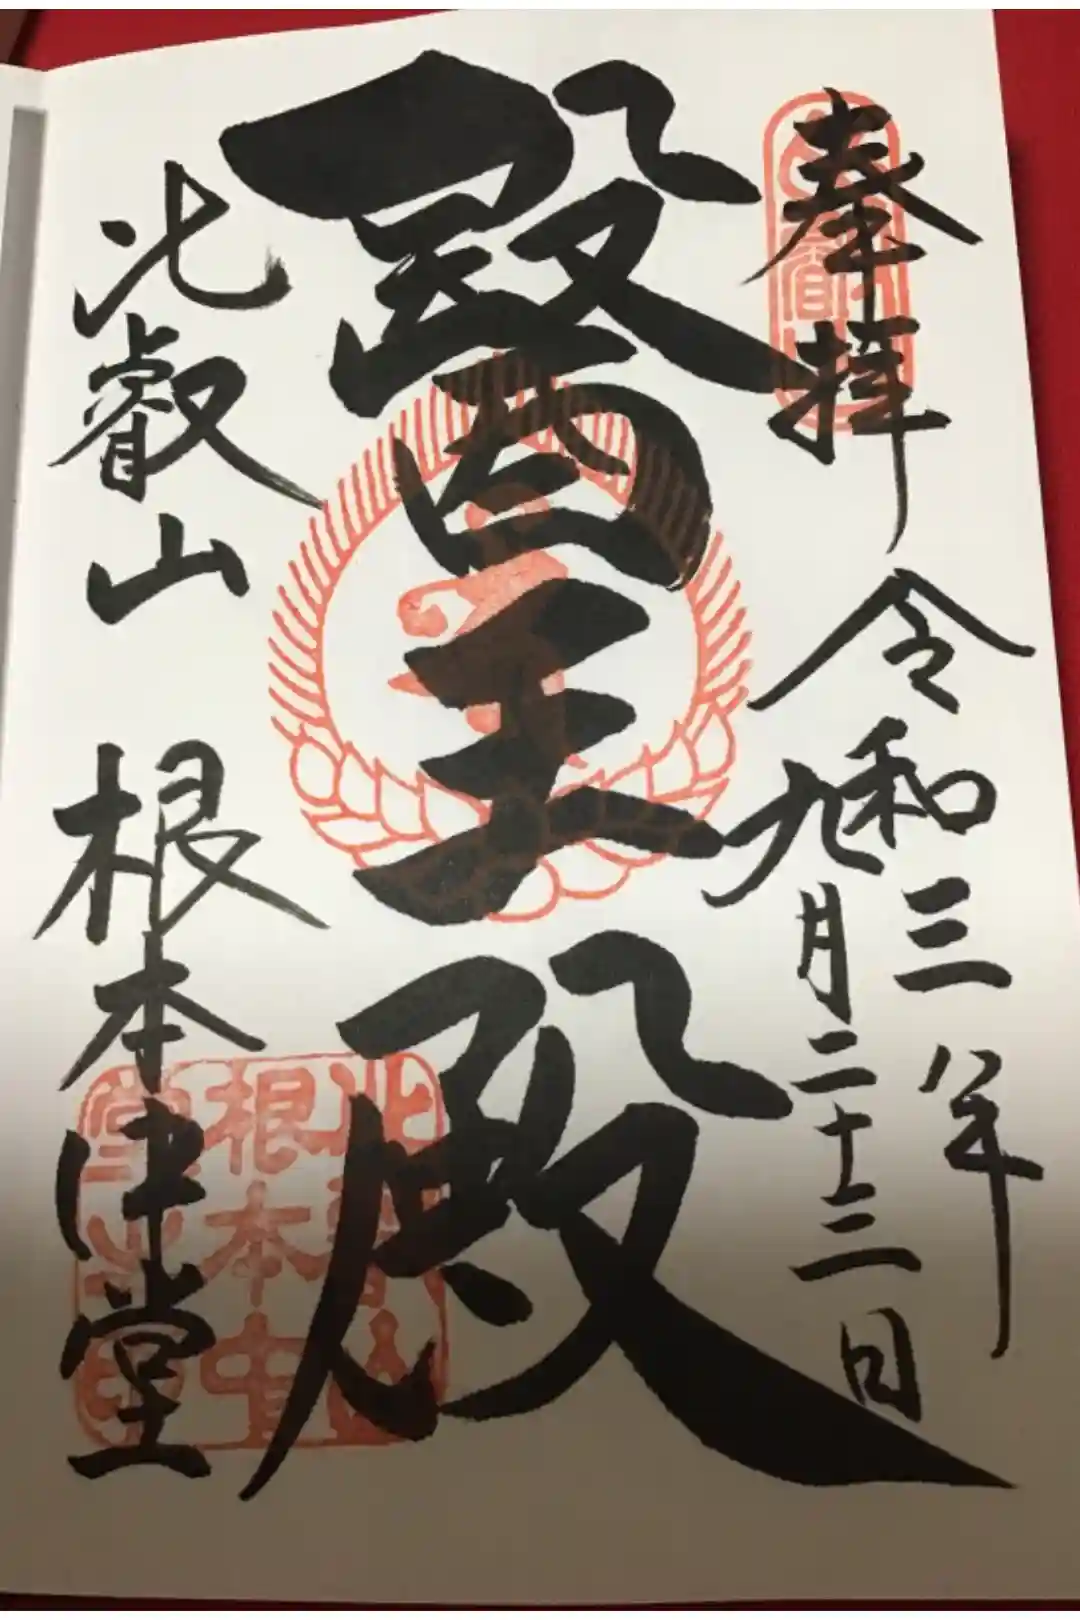 奉拝
令和三年
九月二十三日
醫王殿
比叡山 根本中堂
比叡山
根本中
堂之印